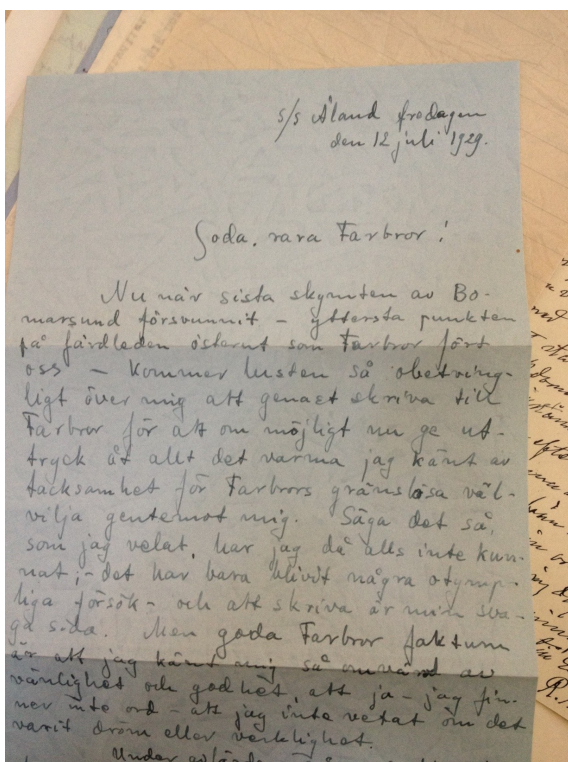 s/s Åland fredagen
den 12 juli 1929.
Goda, rara Farbror!
Nu när sista skymten av Bo-
marsund försvunnit – yttersta punkten
på färdleden österut som Farbror fört
oss – kommer lusten så obetving-
ligt över mig att genast skriva till
Farbror för att om möjligt nu ge ut-
tryck åt allt det varma jag känt av
tacksamhet för Farbrors gränslösa väl-
vilja gentemot mig. Säga det så,
som jag velat, har jag då alls inte kun-
nat; – det har bara blivit några otymp-
liga försök – och att skriva är min sva-
ga sida. Men goda Farbror faktum
är att jag känt mig så omvärvd av
vänlighet och godhet, att ja – jag fin-
ner inte ord – att jag inte vetat om det
varit dröm eller verklighet.
Under